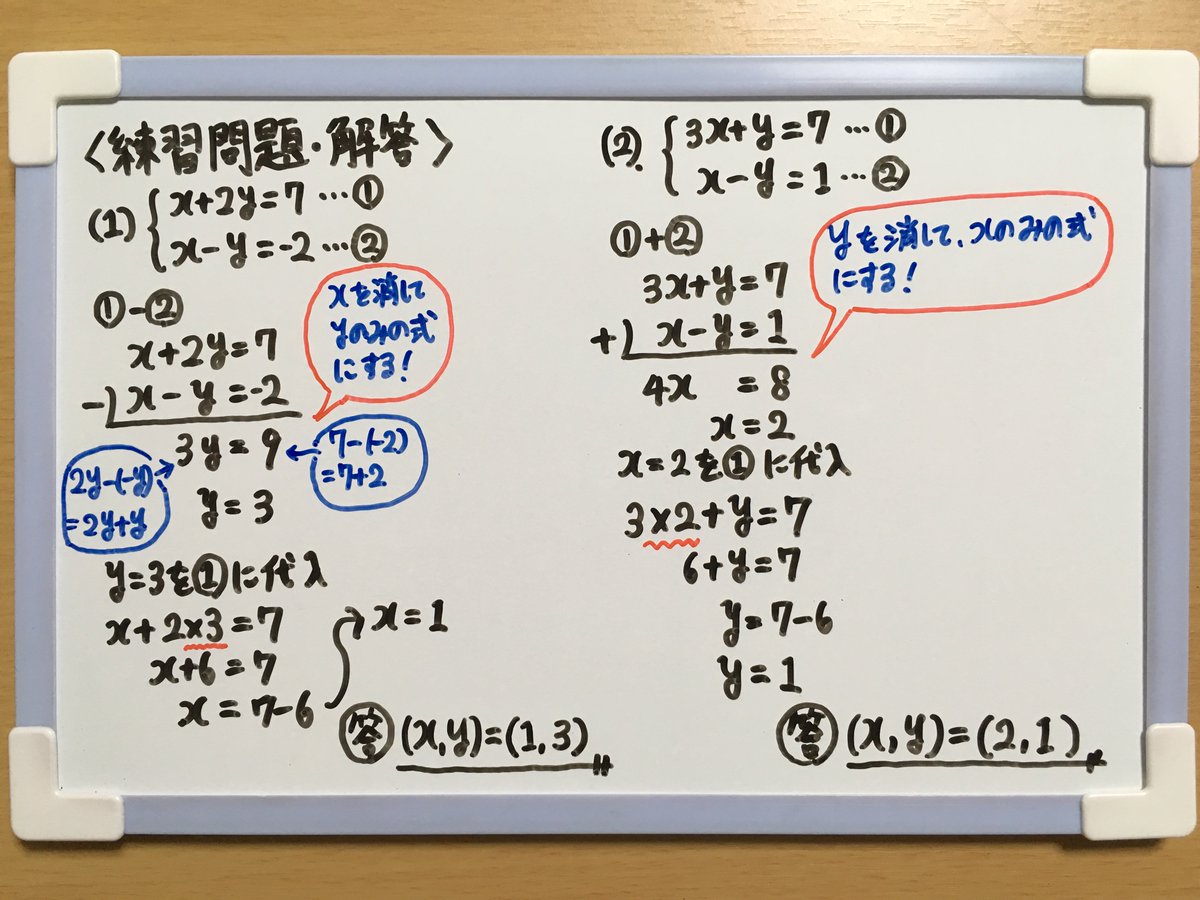 〈練習問題・解答〉
(1) { x+2y=7 …①
x-y=-2 …②
①-②
x+2y=7
-) x-y=-2
3y=9
y=3
xを消して
yのみの式
にする!
2y-(-y)
=2y+y
7-(-2)
=7+2
y=3を①に代入
x+2×3=7
x+6=7
x=7-6
x=1
答 (x,y)=(1,3)
(2). { 3x+y=7 …①
x-y=1 …②
①+②
3x+y=7
+) x-y=1
4x =8
x=2
yを消して、xのみの式
にする!
x=2を①に代入
3×2+y=7
6+y=7
y=7-6
y=1
答 (x,y)=(2,1)